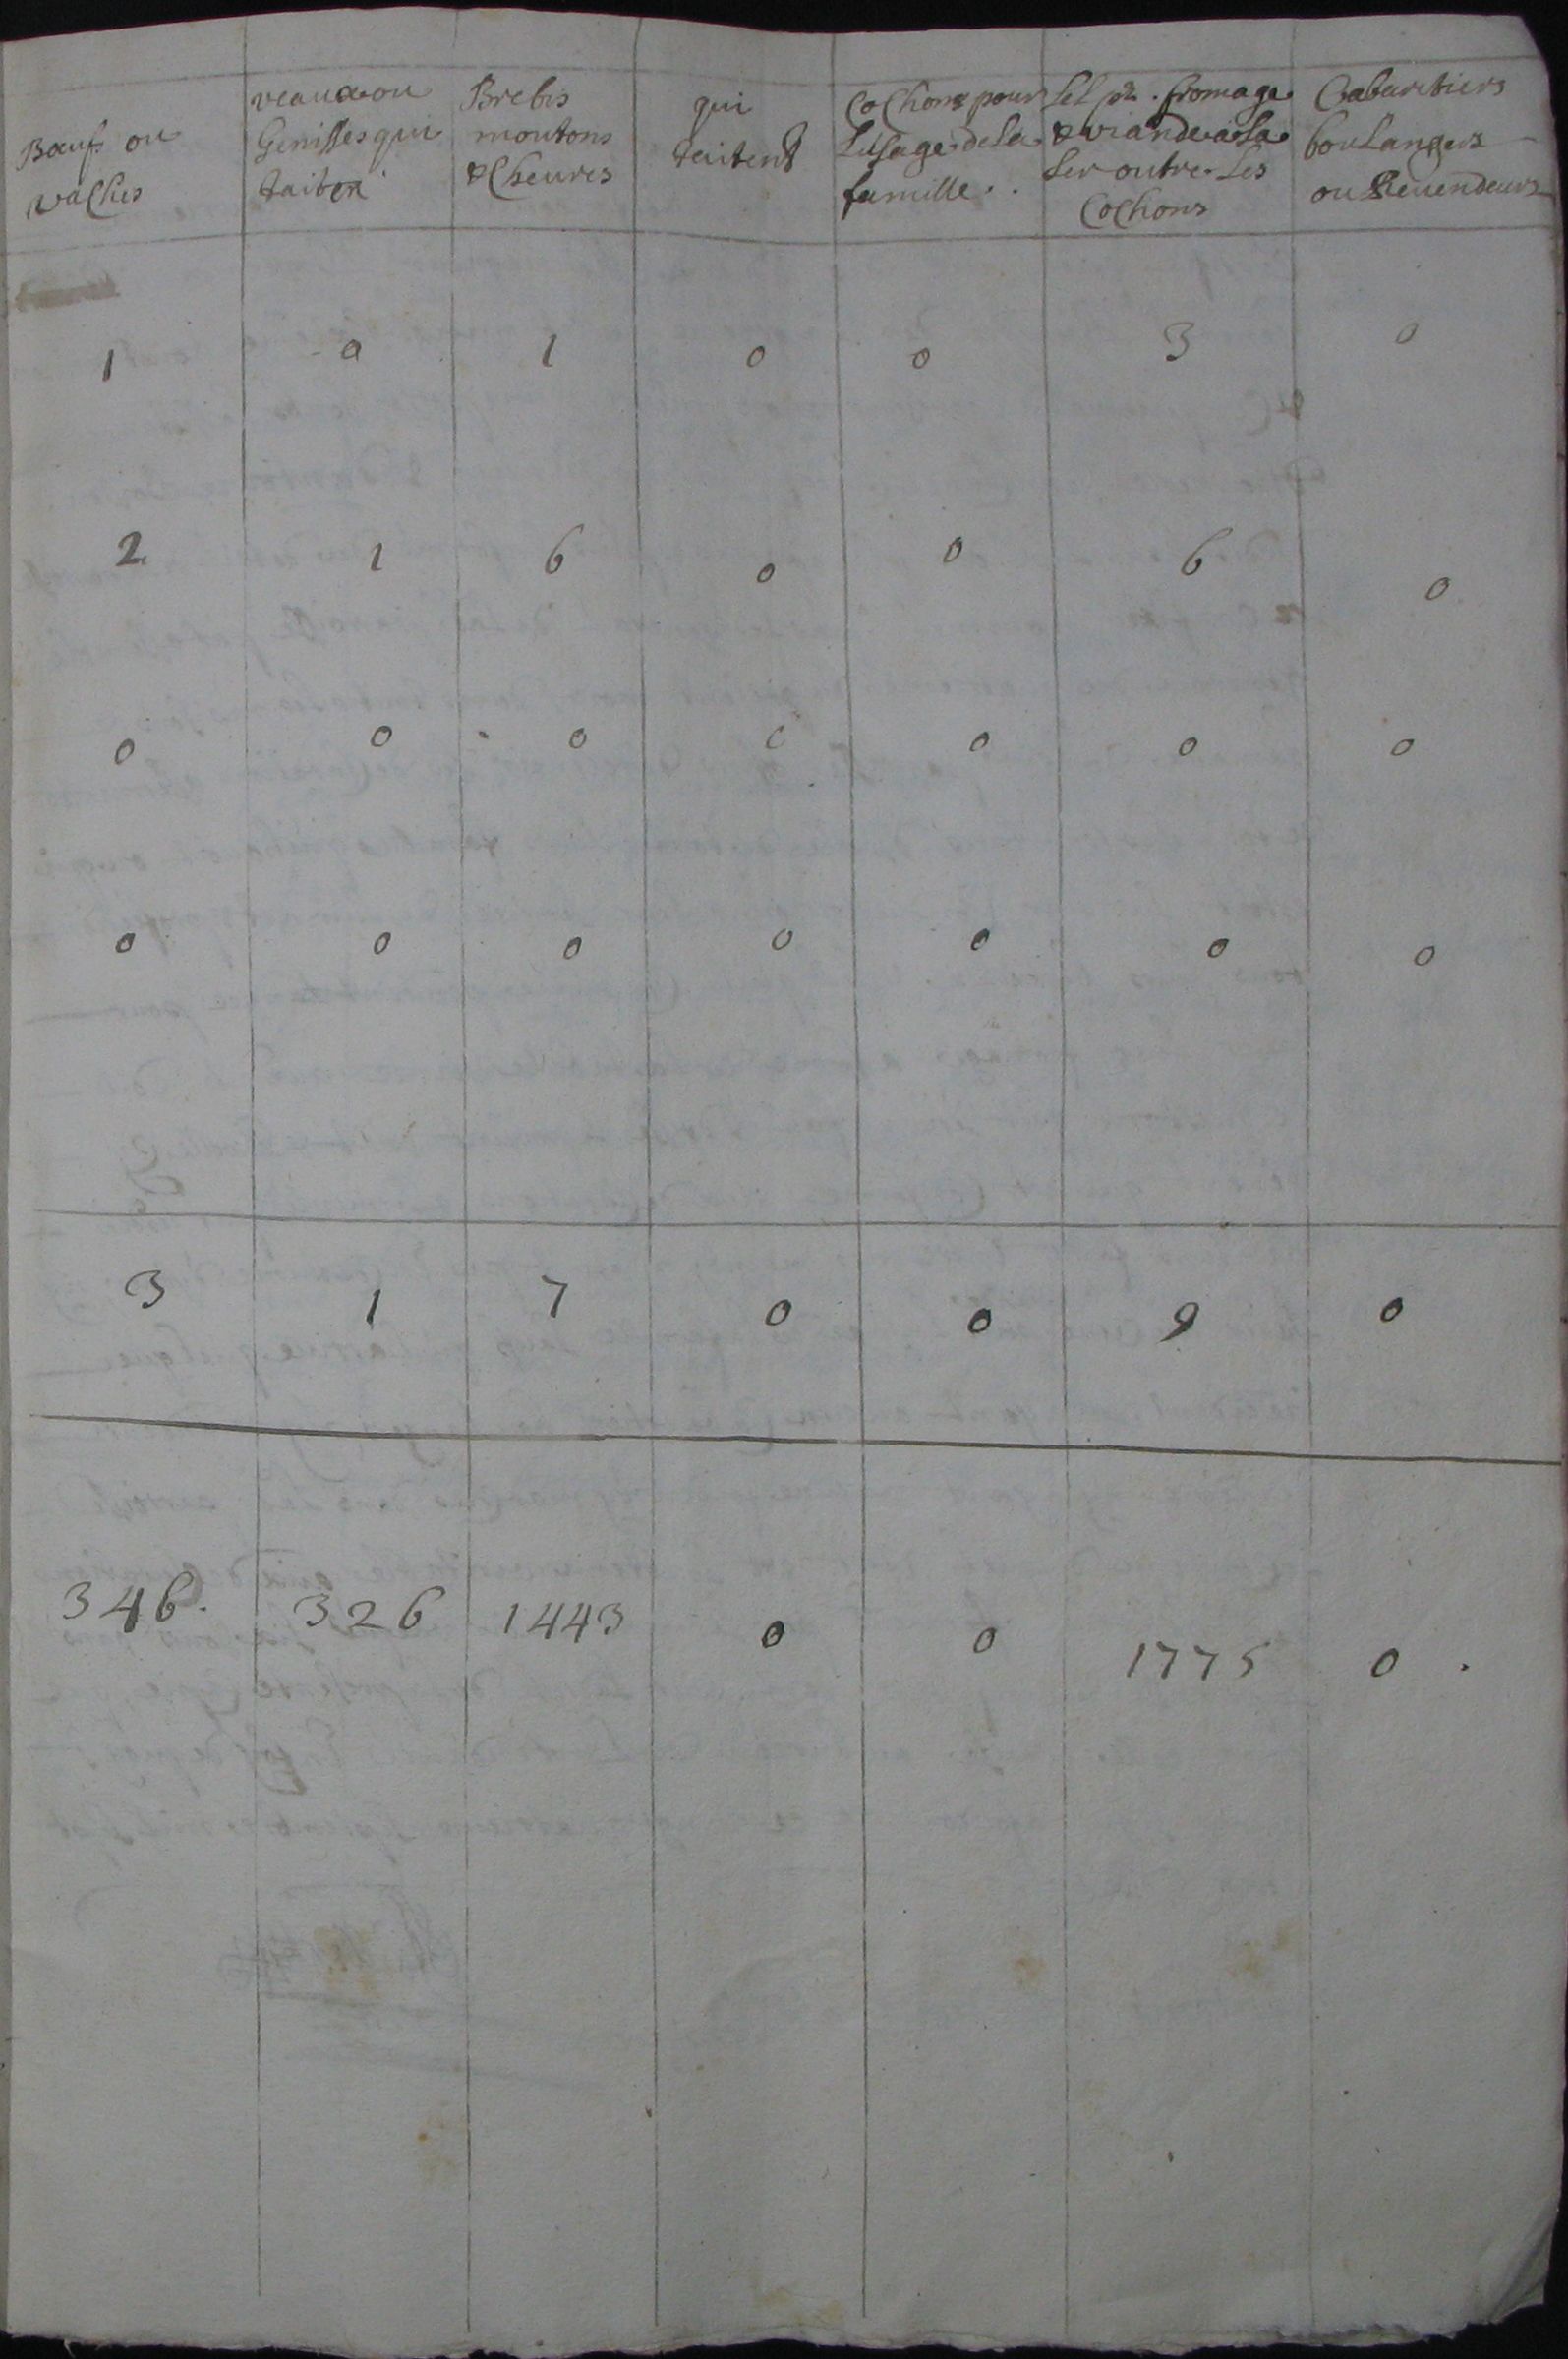 Bœufs ou
vaches
veaux ou
Genisses qui
taitent
Brebis
moutons
& Cheures
qui
taitent
Cochons pour
Lusage de la
famille.
Sel pr. fromage
& viande a sa
ler outre Les
Cochons
Cabaretiers
boulangers
ou Reuendeurs
1 0 1 0 0 3 0
2 1 6 0 0 6 0
0 0 0 0 0 0 0
0 0 0 0 0 0 0
3 1 7 0 0 9 0
346. 326 1443 0 0 1775 0.